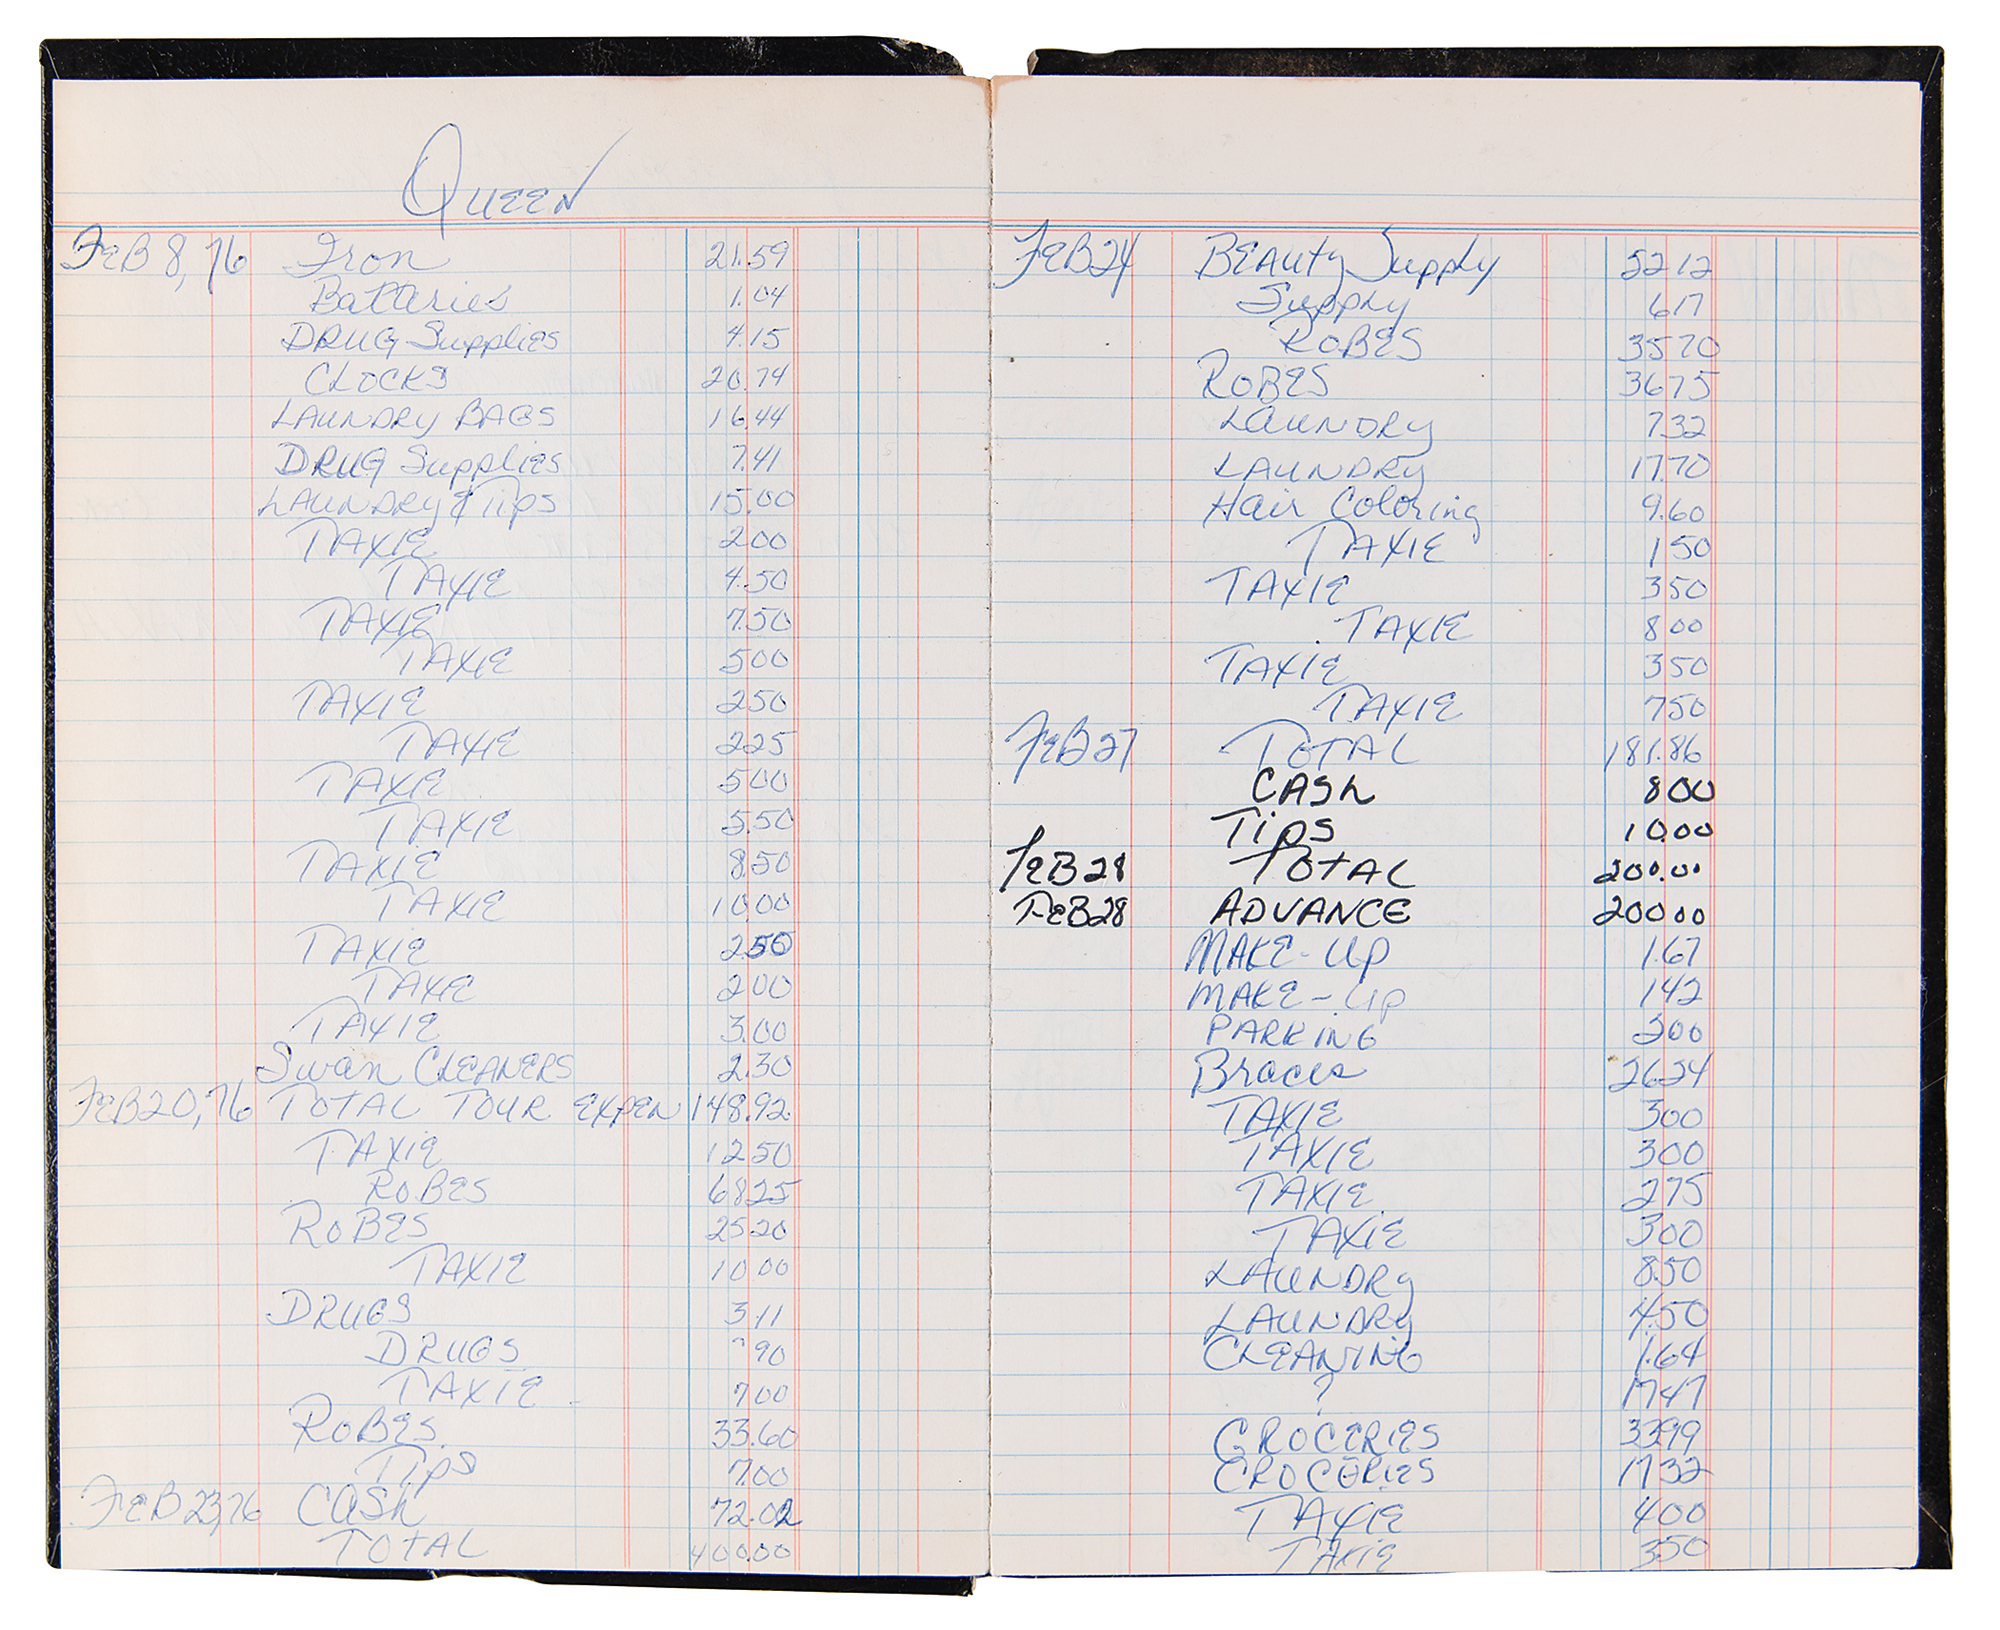 QUEEN
FEB 8, 76 Iron 21.59
Batteries 1.04
DRUG Supplies 4.15
CLOCKS 20.74
LAUNDRY BAGS 16 44
DRUG Supplies 7.41
LAUNDRY & Tips 15.00
TAXIE 200
TAXIE 4.50
TAXIE 7.50
TAXIE 500
TAXIE 250
TAXIE 225
TAXIE 500
TAXIE 5.50
TAXIE 8.50
TAXIE 10.00
TAXIE 2.50
TAXIE 200
TAXIE 3.00
Swan CLEANERS 2.30
FEB 20, 76 TOTAL TOUR EXPEN 148.92
TAXIE 12 50
ROBES 68 25
ROBES 25 20
TAXIE 10 00
DRUGS 3 11
DRUGS 90
TAXIE 7 00
ROBES 33.60
Tips 7.00
FEB 23, 76 CASH 72.02
TOTAL 400.00
FEB 24 BEAUty Supply 52 12
Supply 6 17
ROBES 35 70
ROBES 36 75
LAUNDRY 7 32
LAUNDRY 17 70
Hair Coloring 9.60
TAXIE 1 50
TAXIE 3 50
TAXIE 8 00
TAXIE 3 50
TAXIE 7 50
FEB 27 TOTAL 181.86
CASh 8 00
Tips 10 00
FEB 28 TOTAL 200.00
FEB 28 ADVANCE 200 00
MAKE-Up 1.67
MAKE-Up 1 42
PARKING 300
Braces 26 24
TAXIE 300
TAXIE 300
TAXIE 275
TAXIE 300
LAUNDRY 8.50
LAUNDRY 4.50
CLEANING 1.64
? 17 47
GROCERIES 33 99
GROCERIES 17 32
TAXIE 400
TAXIE 350